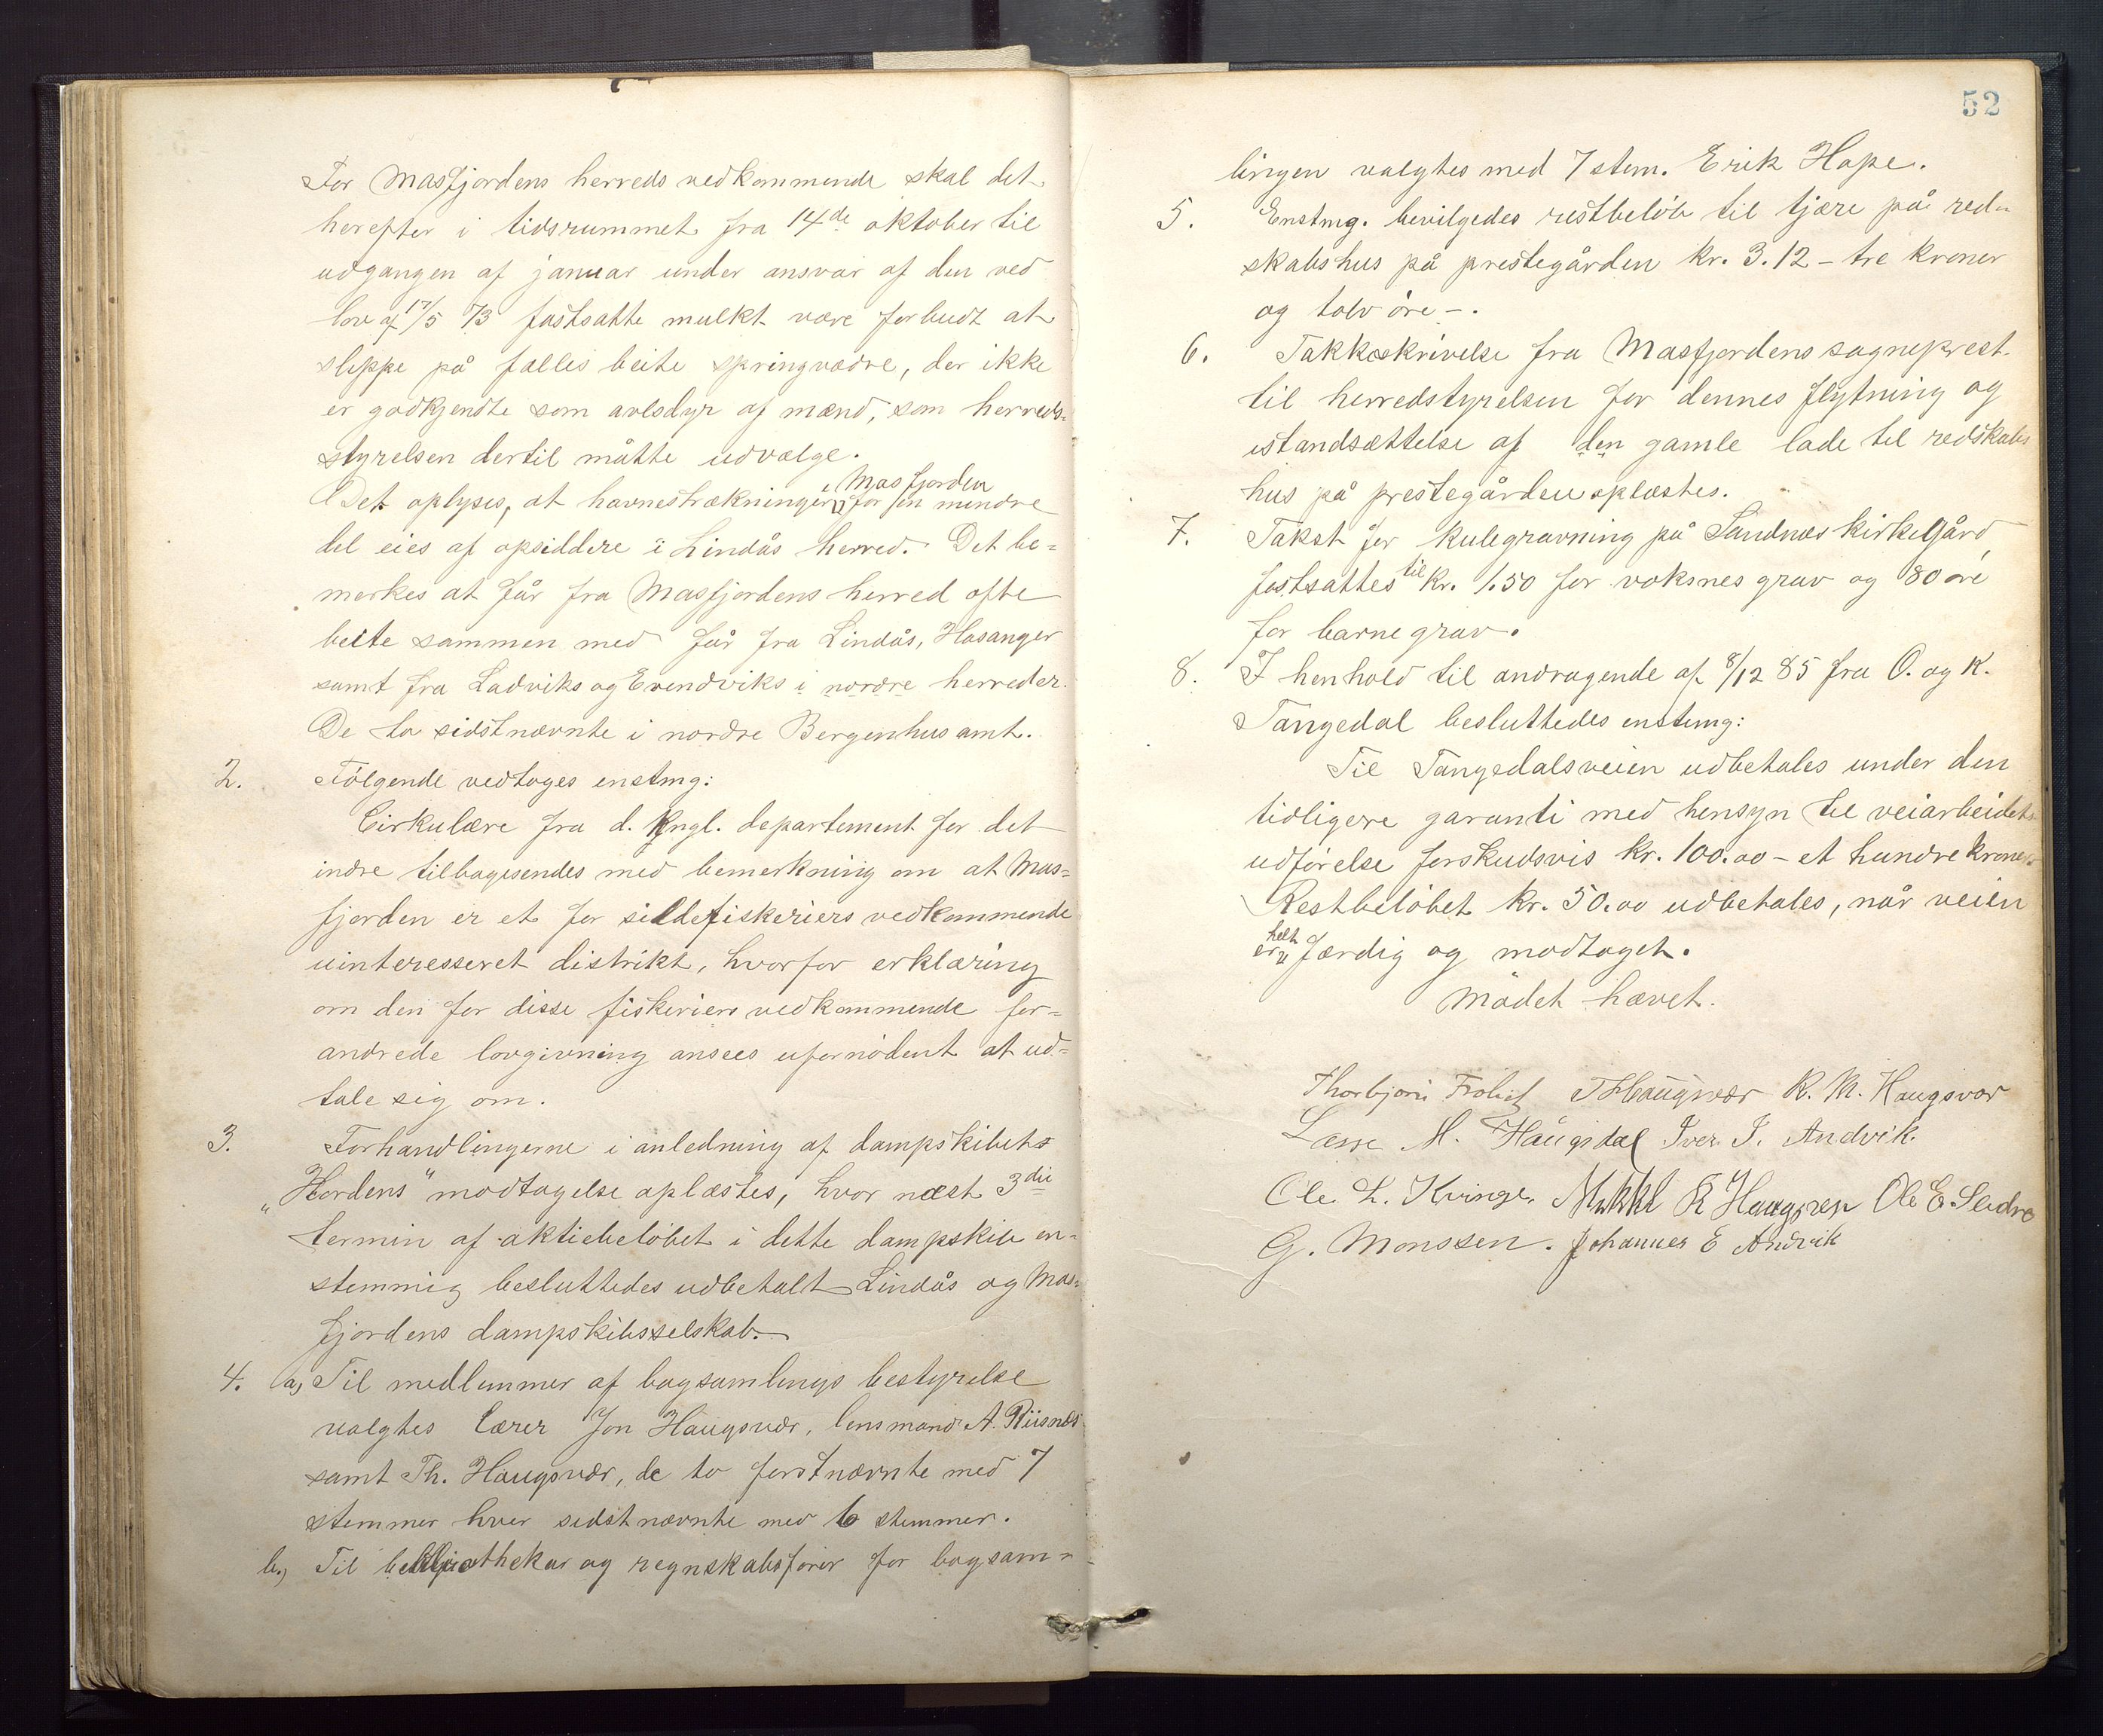 For Masfjordens herreds vedkommende skal det
herefter i tidsrummet fra 14de oktober til
udgangen af januar under ansvar af den ved
lov af 17/5 73 fastsatte mulkt være forbudt at
slippe på fælles beite springvædre, der ikke
er godkjendte som avlsdyr af mænd, som herreds=
styrelsen dertil måtte udvælge.
i Masfjorden
Det oplyses, at havnestrækningen for en mindre
del eies af opsiddere i Lindås herred. Det be=
merkes at får fra Masfjordens herred ofte
beite sammen med får fra Lindås, Hosanger
samt fra Ladviks og Evendviks i nordre herreder.
De to sidstnævnte i nordre Bergenhus amt.
2. Følgende vedtoges enstmg:
Cirkulære fra d. kngl. departement for det
indre tilbagesendes med bemerkning om at Mas=
fjorden er et for sildefiskeriers vedkommende
uinteresseret distrikt, hvorfor erklæring
om den for disse fiskeriers vedkommende for=
andrede lovgivning ansees ufornødent at ud=
tale sig om.
3. Forhandlingerne i anledning af dampskibets
„Hordens" modtagelse oplæstes, hvor næst 3die
termin af aktiebeløbet i dette dampskib en=
stemmig besluttedes udbetalt Lindås og Mas=
fjordens dampskibsselskab.
4. a) Til medlemmer af bogsamlings bestyrelse
valgtes lærer Jon Haugsvær, lensmand A. Riisnes
samt Th. Haugsvær, de to førstnævnte med 7
stemmer hver sidstnævnte med 6 stemmer.
b.) Til bibliothekar og regnskabsfører for bogsam=
52
lingen valgtes med 7 stem. Erik Hope.
5. Enstmg. bevilgedes restbeløb til tjære på red=
skabshus på prestegården kr. 3.12 – tre kroner
og tolv øre –.
6. Takkeskrivelse fra Masfjordens sogneprest
til herredstyrelsen for dennes flytning og
istandsættelse af den gamle lade til redskabs
hus på prestegården oplæstes.
7. Takst for kulegravning på Sandnes kirkegård
fastsattes til kr. 1.50 for voksnes grav og 80 øre
for barnegrav.
8. I henhold til andragende af 8/12 85 fra O. og K.
Tangedal besluttedes enstmg:
Til Tangedalsveien udbetales under den
tidligere garanti med hensyn til veiarbeidets
udførelse forskudsvis kr. 100.00 – et hundre kroner.
Restbeløbet kr. 50.00 udbetales, når veien
er helt færdig og modtaget.
Mødet hævet.
Thorbjørn Frolich T Haugsvær R. M. Haugsvær
Lasse M. Haugsdal Iver I. Andvik.
Ole L. Kvinge. Mikkel R Haugsvær Ole E. Sleire
G. Monssen. Johannes E Andvik